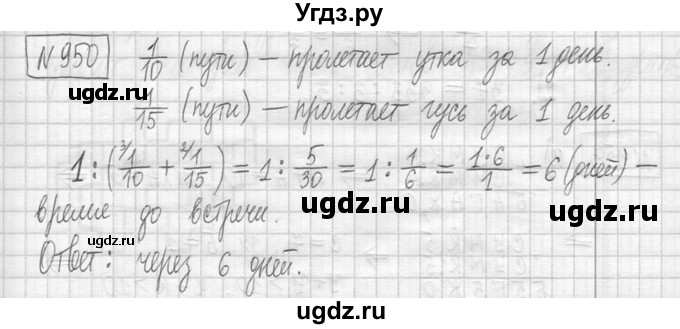 Угдз.ру
№950 1/10 (пути) — пролетает утка за 1 день.
ugdz.ru ugdz.ru
1/15 (пути) — пролетает гусь за 1 день.
1 : (³⁾1/10 + ²⁾1/15) = 1 : 5/30 = 1 : 1/6 = 1·6/1 = 6 (дней) —
ugdz.ru ugdz.ru
время до встречи.
ugdz.ru
Ответ: через 6 дней.
ugdz.ru
ugdz.ru